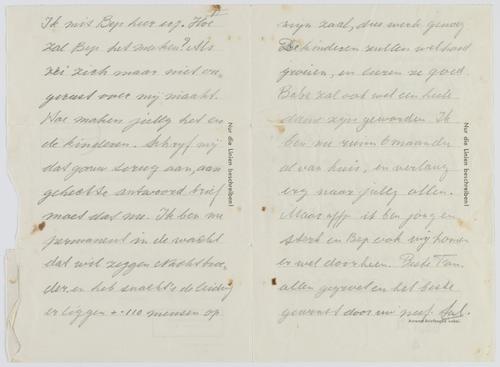 Ik mis Bep heel erg. Hoe
zal Bep het maken? Als
zij zich maar niet on-
gerust over mij maakt.
Hoe maken jullie het en
de kinderen. Schrijf mij
dat gauw terug aan, aan
gehechte antwoord brief
moet dat nu. Ik ben nu
permanent in de wacht
dat wil zeggen Nachtbroe-
der, en heb snachts de leiding
er liggen +- 110 mensen op
Nur die Linien beschreiben!
mijn zaal, dus werk genoeg
De kinderen zullen wel hard
groeien, en leeren ze goed.
Bebs zal ook wel een heele
dame zijn geworden. Ik
ben nu ruim 6 maanden
al van huis, en verlang
erg naar jullie allen.
Maar ik ben jong en
sterk en Bep ook wij komen
er wel doorheen. Beste Fam.
allen gegroet en het beste
gewenst door uw neef.
Nur die Linien beschreiben!